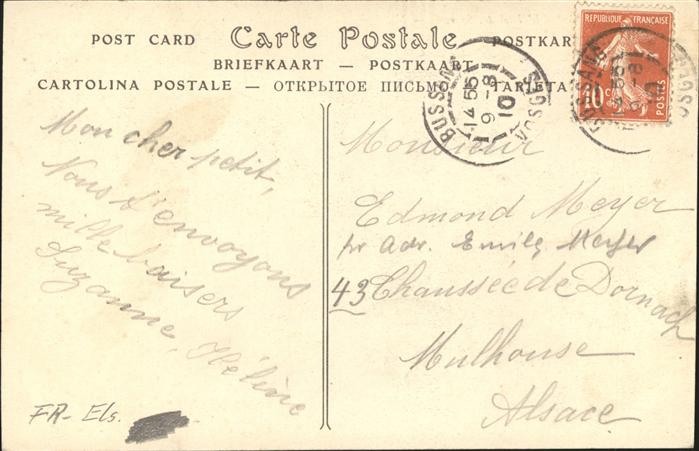 POST CARD Carte Postale POSTKARTE
BRIEFKAART — POSTKAART
CARTOLINA POSTALE — ОТКРЫТОЕ ПИСЬМО — TARJETA
REPUBLIQUE FRANÇAISE
10 c
POSTES
BUSSANG
14 55
9 - 8
10
VOSGES
BUSSANG
14 55
9 - 8
10
VOSGES
Mon cher petit,
Nous t'envoyons
mille baisers
Suzanne, Hélène
Monsieur
Edmond Meyer
pr Adr. Emile Meyer
43 Chaussée de Dornach
Mulhouse
Alsace
FR - Els.